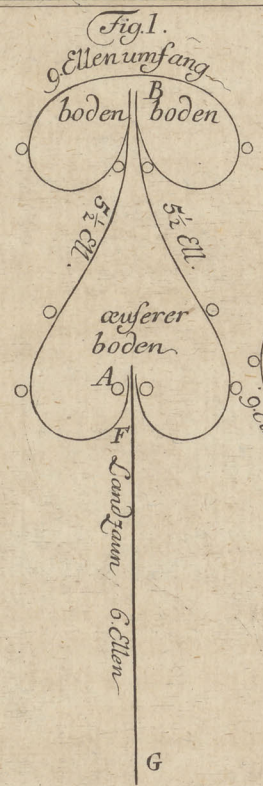 Fig. 1.
9. Ellen umfang
B
boden boden
5½ Ell.
5½ Ell.
æuserer
boden
A
F
Landzaun 6. Ellen
G